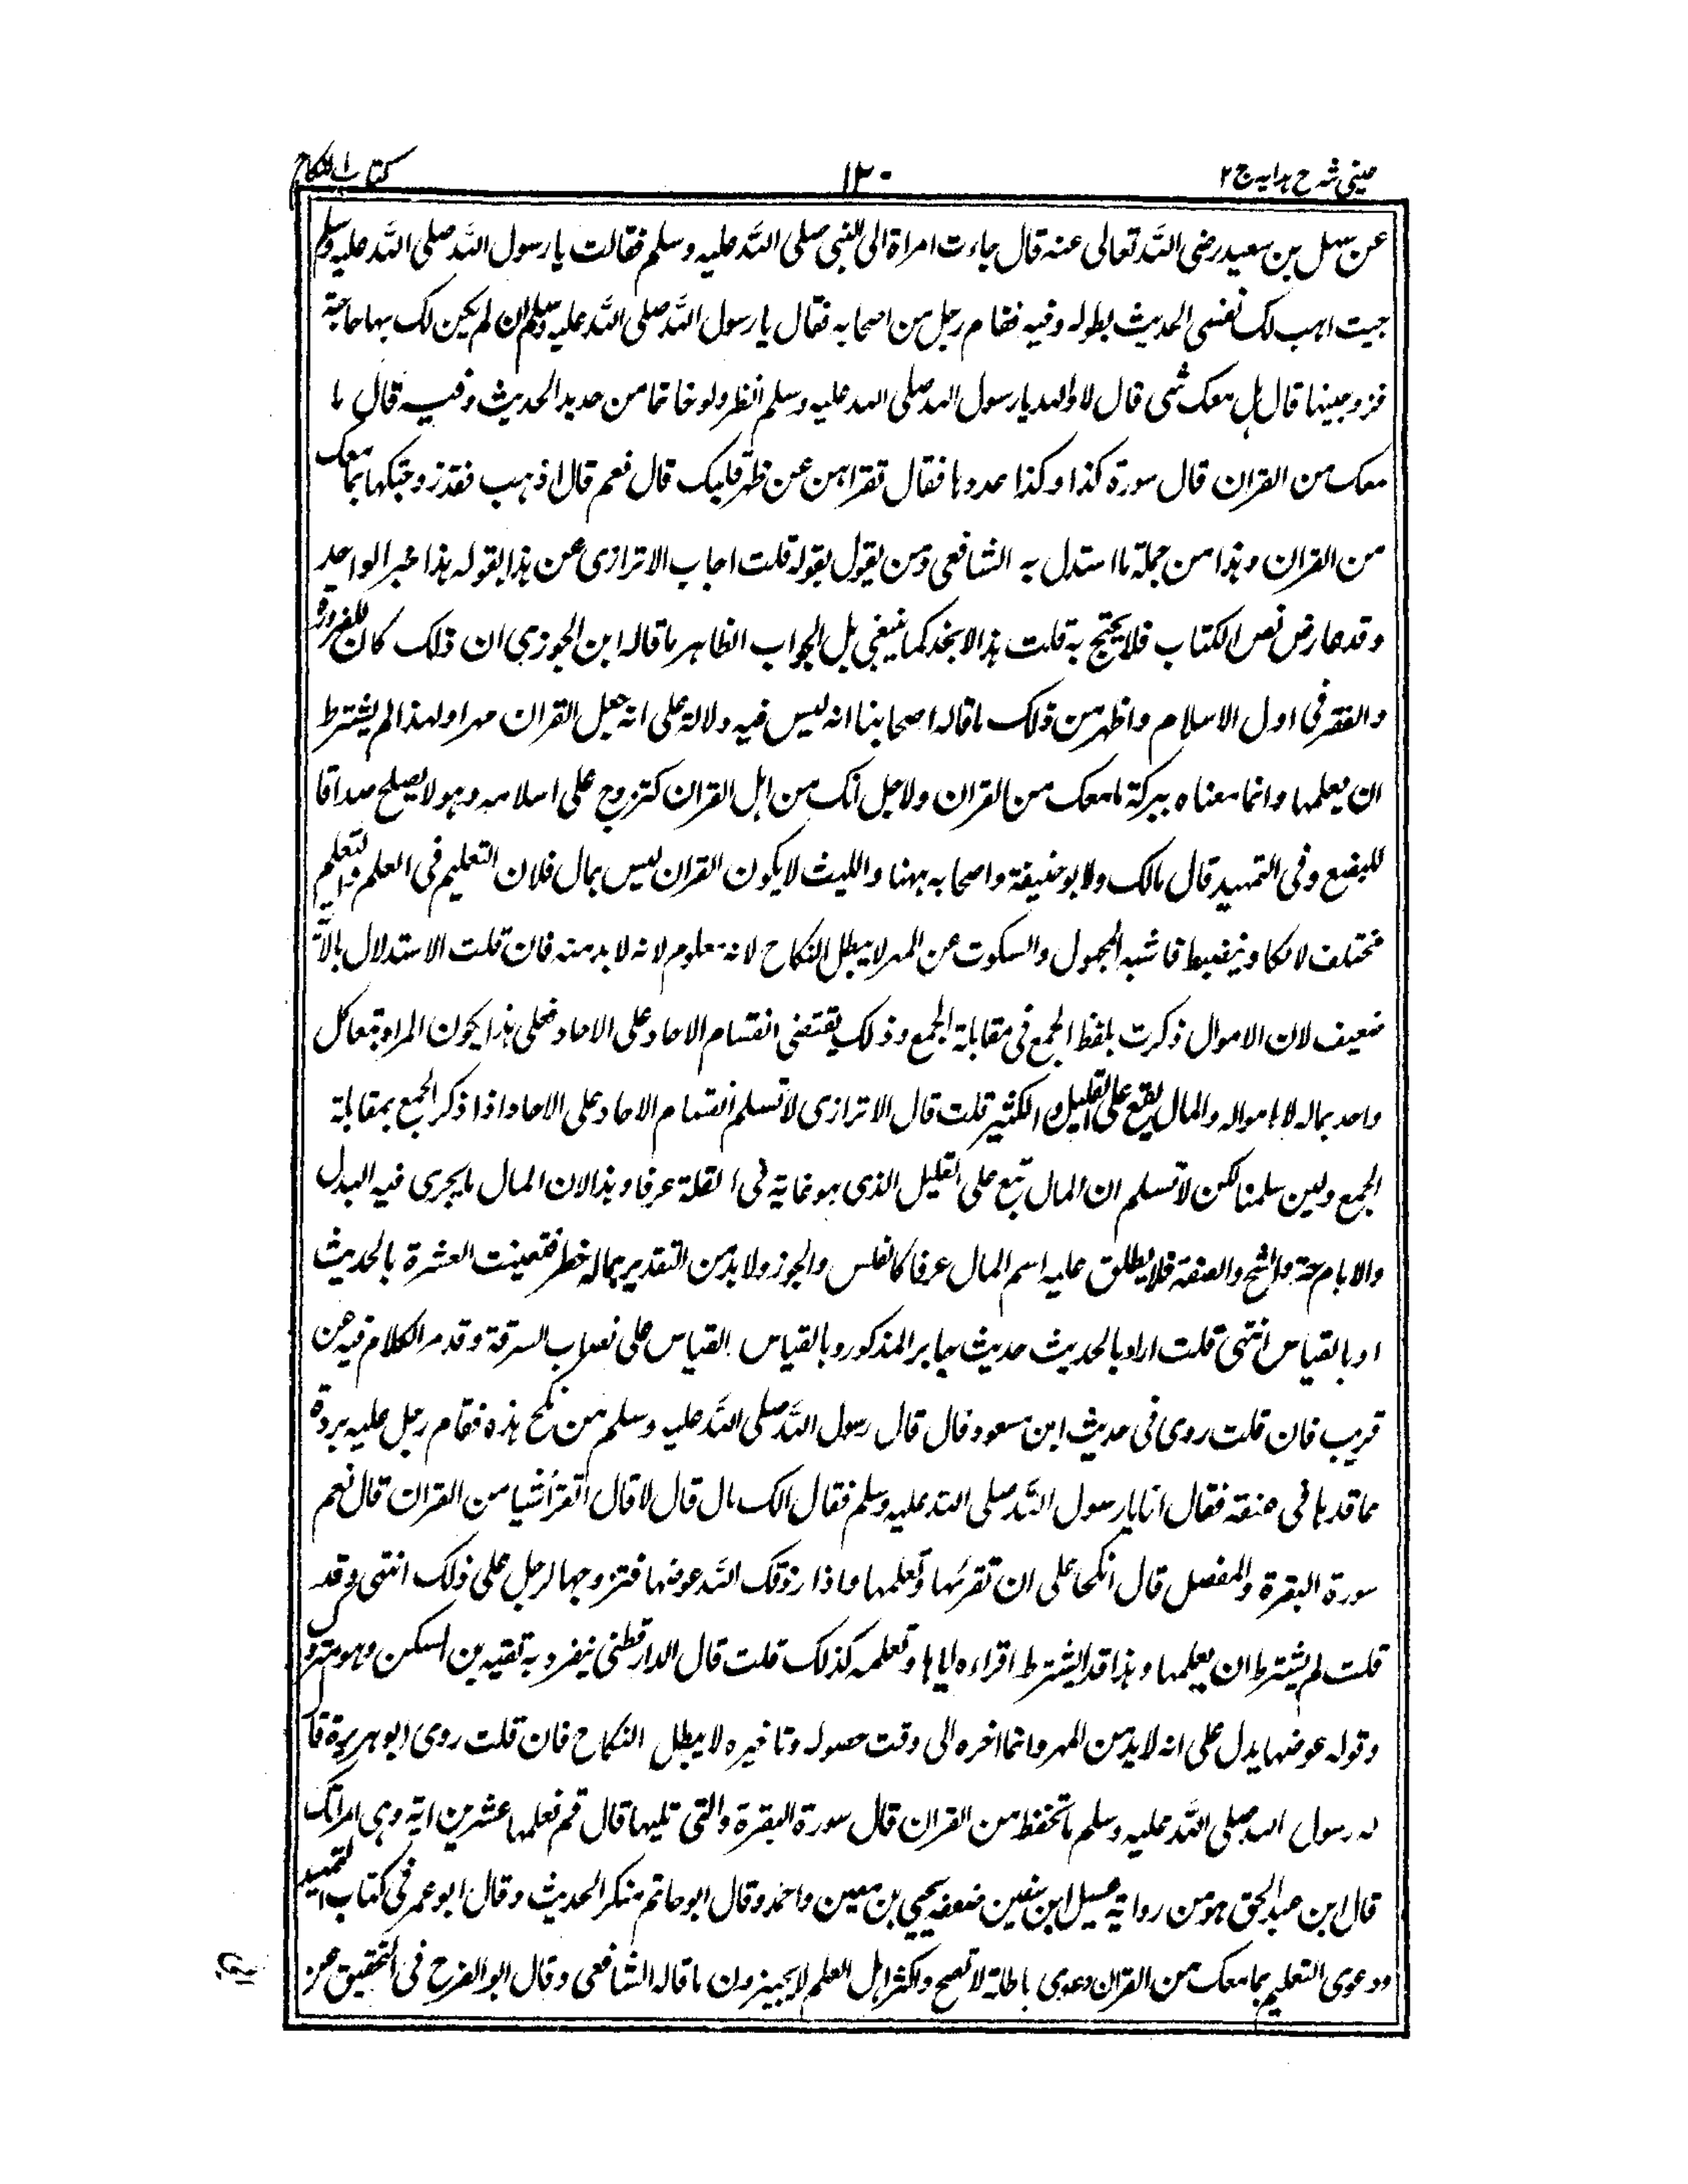 عینی شرح ہدایہ ج ۲
۱۳۰
کتاب النکاح
عن سهل بن سعيد رضى الله تعالى عنه قال جاءت امراة الى النبى صلى الله عليه وسلم فقالت يا رسول الله صلى الله عليه وسلم
جيت اهب لك نفسى الحديث بطوله وفيه فقام رجل من اصحابه فقال يا رسول الله صلى الله عليه وسلم ان لم يكن لك بها حاجة
فزوجينها قال هل معك شى قال لا والله يا رسول الله صلى الله عليه وسلم انظر ولو خاتما من حديد الحديث وفيه قال ما
معك من القران قال سورة كذا وكذا عددها فقال تقراهن عن ظهر قلبك قال نعم قال اذهب فقد زوجتكها بما معك
من القران وهذا من جملة ما استدل به الشافعى ومن يقول بقوله قلت اجاب الاترازى عن هذا بقوله هذا خبر الواحد
وقد عارض نص الكتاب فلا يحتج به قلت هذا لا يخد كما ينبغى بل الجواب الظاهر ما قاله ابن الجوزى ان ذلك كان للضرورة
والفقر فى اول الاسلام واظهر من ذلك ما قاله اصحابنا انه ليس فيه دلالة على انه جعل القران مهرا ولهذا لم يشترط
ان يعلمها وانما معناه ببركة ما معك من القران ولاجل انك من اهل القران كتزوج على اسلامه وهو لا يصلح صداقا
للبضع وفى التمهيد قال مالك ولابو حنيفة واصحابه ههنا والليث لا يكون القران ليس بمال فلان التعليم فى العلم
مختلف لا يكاد ينضبط فاشبه المجهول والسكوت عن المهر لا يبطل النكاح لانه معلوم لانه لا بد منه فان قلت الاستدلال بالآ
ضعيف لان الاموال ذكرت بلفظ الجمع فى مقابلة الجمع وذلك يقتضى انقسام الاحاد على الاحاد فعلى هذا يكون المراد كل
واحد بماله لا امواله والمال يقع على القليل والكثير قلت قال الاترازى لا نسلم انقسام الاحاد على الاحاد اذا ذكر الجمع بمقابلة
الجمع ولين سلمنا لكن لا نسلم ان المال يقع على القليل الذى هو غاية فى القلة عرفا وهذا لان المال ما يجرى فيه البذل
والاباحة والشح والضنة فلا يطلق عليه اسم المال عرفا كالفلس والجوز ولا بد من التقدير بماله خطر فتعينت العشرة بالحديث
او بالقياس انتهى قلت اراد بالحديث حديث جابر المذكور وبالقياس القياس على نصاب السرقة وقد مر الكلام فيه عن
قريب فان قلت روى فى حديث ابن مسعود قال قال رسول الله صلى الله عليه وسلم من نكح هذه فقام رجل عليه بردة
عاقدها فى عنقه فقال انا يا رسول الله صلى الله عليه وسلم فقال الك مال قال لا قال اتقرأ شيا من القران قال نعم
سورة البقرة والمفصل قال انكحا على ان تقرئها وتعلمها ماذا رزقك الله عوضها فتزوجها الرجل على ذلك انتهى وقد
قلت لم يشترط ان يعلمها وهذا قد اشترط اقراءه اياها وتعلمه كذلك قلت قال الدارقطنى ينفرد به عقبه بن السكن وهو متروك
وقوله عوضها يدل على انه لا بد من المهر وانما اخره الى وقت حصوله وتاخيره لا يبطل النكاح فان قلت روى ابو هريرة قا
له رسول الله صلى الله عليه وسلم ما تحفظ من القران قال سورة البقرة والتى تليها قال قم فعلمها عشرين اية وهى امراتك
قال ابن عبد الحق هو من رواية عسيل ابن سفين ضعفه يحيى بن معين واحمد وقال ابو حاتم منكر الحديث وقال ابو عمر فى كتاب التمهيد
ودعوى التعليم بما معك من القران دعوى باطلة لا تصح واكثر اهل العلم لا يجيزون ما قاله الشافعى وقال ابو الفرج فى التحقيق عن